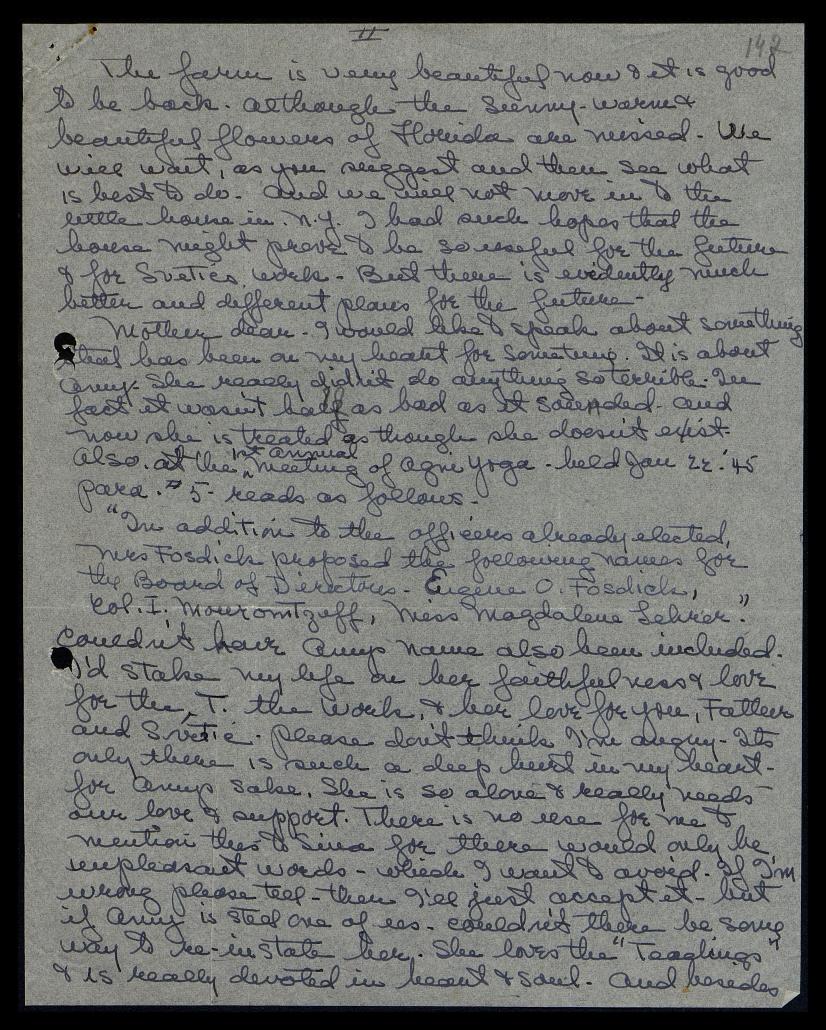 II
142
The farm is very beautiful now & it is good
to be back. Although the sunny-warm &
beautiful flowers of Florida are missed. We
will wait, as you suggest and then see what
is best to do. And we will not move in to the
little house in N.Y. I had such hopes that the
house might prove to be so useful for the future
& for Svetics work. But there is evidently much
better and different plans for the future-
Mother dear. I would like to speak about something
that has been on my heart for sometime. It is about
Amy. She really didn't do anything so terrible. In
fact it wasn't half as bad as it sounded. And
now she is treated as though she doesn't exist.
Also. at the 1st annual meeting of Agni Yoga - held Jan 22.'45
para. #5- reads as follows-
"In addition to the officers already elected,
Mrs Fosdick proposed the following names for
the Board of Directors- Eugene O. Fosdick,
Col. I. Mouromtzeff, Miss Magdalene Lehrer."
Couldn't have Amys name also been included.
I'd stake my life on her faithfulness & love
for the, T. the Work, & her love for you, Father
and Svetic. Please don't think I'm angry- Its
only there is such a deep hurt in my heart-
for Amys sake. She is so alone & really needs
our love & support. There is no use for me to
mention this to Sina for there would only be
unpleasant words- which I want to avoid. If I'm
wrong please tell- then I'll just accept it- but
if Amy is still one of us- couldn't there be some
way to re-instate her. She loves the "Teachings"
& is really devoted in heart & soul. And besides